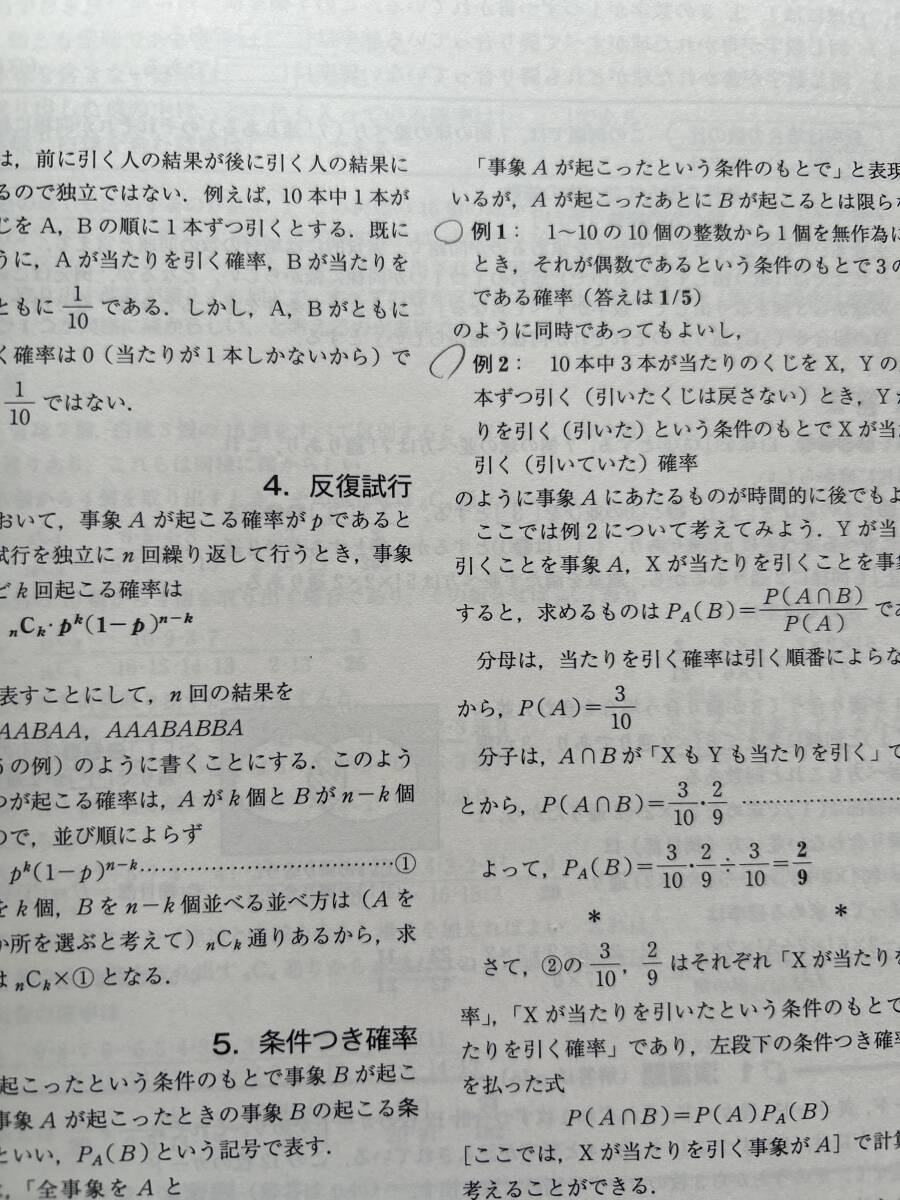 は，前に引く人の結果が後に引く人の結果に
るので独立ではない．例えば，10本中1本が
じをA，Bの順に1本ずつ引くとする．既に
うに，Aが当たりを引く確率，Bが当たりを
ともに 1/10 である．しかし，A，Bがともに
く確率は0（当たりが1本しかないから）で
1/10 ではない．
4．反復試行
おいて，事象Aが起こる確率がpであると
試行を独立にn回繰り返して行うとき，事象
どk回起こる確率は
nCk・p^k(1−p)^{n−k}
表すことにして，n回の結果を
AABAA，AAABABBA
の例）のように書くことにする．このよう
つが起こる確率は，Aがk個とBがn−k個
ので，並び順によらず
p^k(1−p)^{n−k}……………………………①
をk個，Bをn−k個並べる並べ方は（Aを
か所を選ぶと考えて）nCk通りあるから，求
は nCk×①となる．
5．条件つき確率
起こったという条件のもとで事象Bが起こ
事象Aが起こったときの事象Bの起こる条
といい，PA(B)という記号で表す．
，「全事象をAと
「事象Aが起こったという条件のもとで」と表現
いるが，Aが起こったあとにBが起こるとは限らな
例1： 1〜10の10個の整数から1個を無作為に
とき，それが偶数であるという条件のもとで3の
である確率（答えは1/5）
のように同時であってもよいし，
例2： 10本中3本が当たりのくじをX，Yの
本ずつ引く（引いたくじは戻さない）とき，Yが
りを引く（引いた）という条件のもとでXが当
引く（引いていた）確率
のように事象Aにあたるものが時間的に後でもよ
ここでは例2について考えてみよう．Yが当
引くことを事象A，Xが当たりを引くことを事象
すると，求めるものは PA(B)=P(A∩B)/P(A) であ
分母は，当たりを引く確率は引く順番によらな
から，P(A)=3/10
分子は，A∩Bが「XもYも当たりを引く」で
とから，P(A∩B)=3/10・2/9 ………………
よって，PA(B)=3/10・2/9÷3/10=2/9
＊ ＊
さて，②の 3/10，2/9 はそれぞれ「Xが当たりを
率」，「Xが当たりを引いたという条件のもとで
たりを引く確率」であり，左段下の条件つき確率
を払った式
P(A∩B)=P(A)PA(B)
［ここでは，Xが当たりを引く事象がA］で計算
考えることができる．